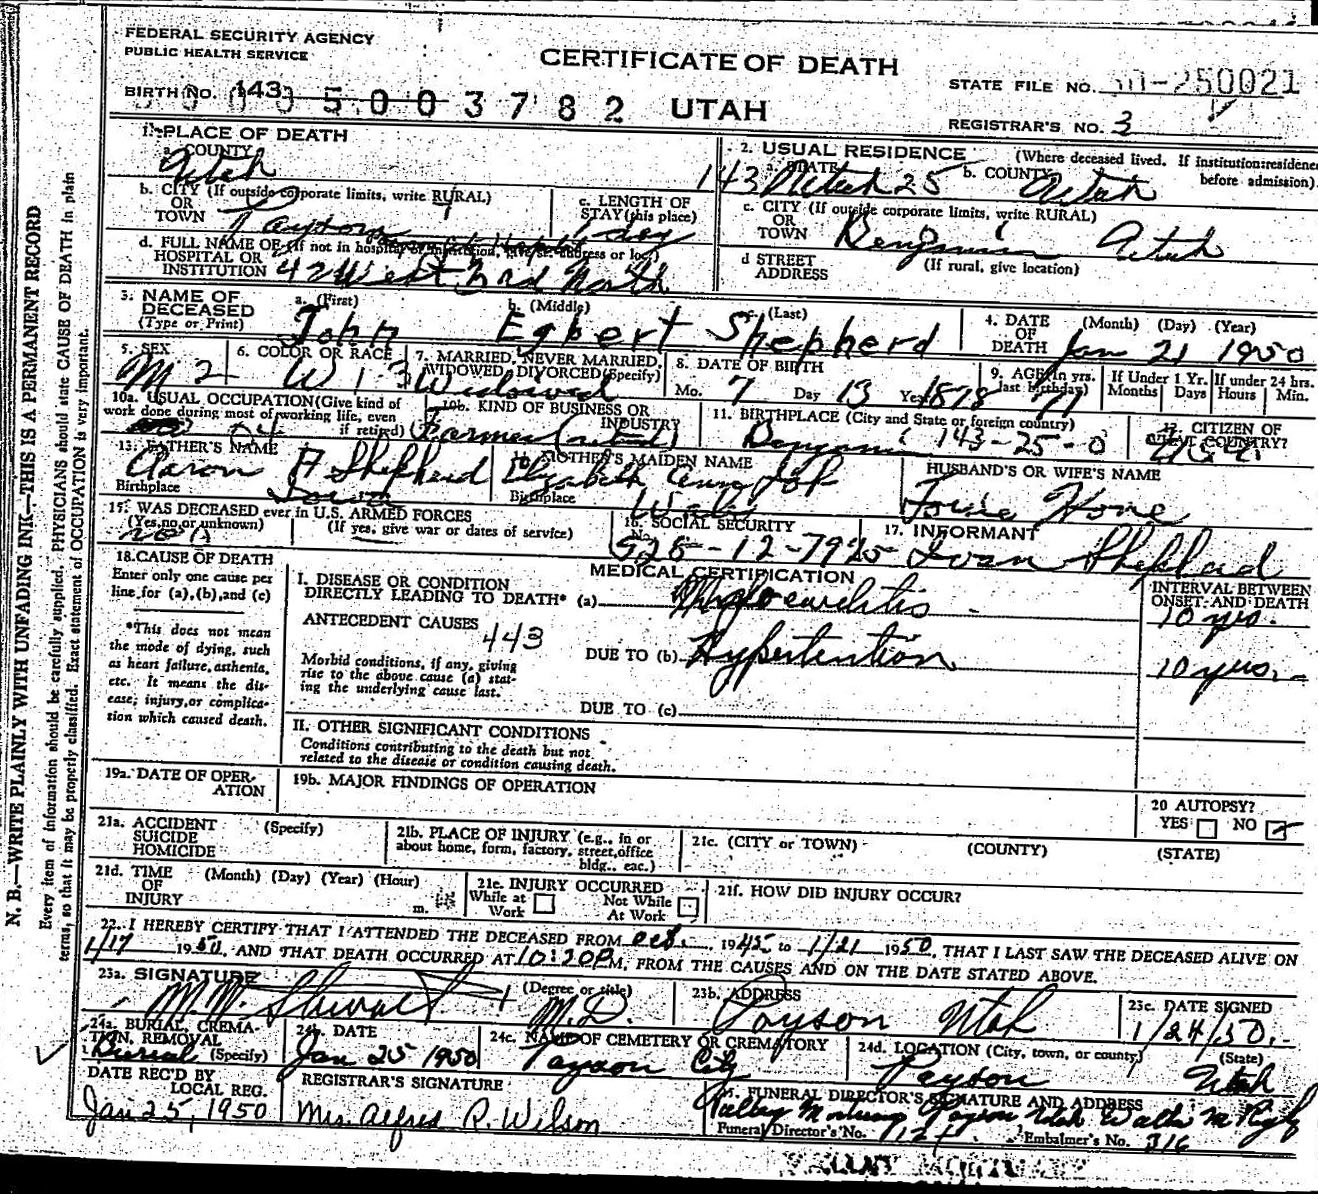 FEDERAL SECURITY AGENCY
PUBLIC HEALTH SERVICE
CERTIFICATE OF DEATH
STATE FILE NO. 50-250021
BIRTH NO. 143
5003782 UTAH
REGISTRAR'S NO. 3
1. PLACE OF DEATH
a. COUNTY
Utah
2. USUAL RESIDENCE (Where deceased lived. If institution:residence before admission)
a. STATE 143 Utah 25 b. COUNTY Utah
b. CITY (If outside corporate limits, write RURAL)
OR
TOWN Payson
c. LENGTH OF
STAY (this place)
1 day
c. CITY (If outside corporate limits, write RURAL)
OR
TOWN Benjamin Utah
d. FULL NAME OF (If not in hospital or institution, give st. address or loc.)
HOSPITAL OR
INSTITUTION 42 West 3rd North
d STREET
ADDRESS
(If rural, give location)
3. NAME OF
DECEASED
(Type or Print)
a. (First) b. (Middle) c. (Last)
John Egbert Shepherd
4. DATE
OF
DEATH
(Month) (Day) (Year)
Jan 21 1950
5. SEX
M 2
6. COLOR OR RACE
W 1-3
7. MARRIED, NEVER MARRIED,
WIDOWED, DIVORCED (Specify)
Widowed
8. DATE OF BIRTH
Mo. 7 Day 13 Year 1878
9. AGE (In yrs.
last birthday)
71
If Under 1 Yr.
Months Days
If under 24 hrs.
Hours Min.
10a. USUAL OCCUPATION (Give kind of
work done during most of working life, even
if retired)
10b. KIND OF BUSINESS OR
INDUSTRY
Farmer (retired)
11. BIRTHPLACE (City and State or foreign country)
Benjamin 143-25-0
12. CITIZEN OF
WHAT COUNTRY?
13. FATHER'S NAME
Aaron F Shepherd
Birthplace
Iowa
14. MOTHER'S MAIDEN NAME
Elizabeth Ann
Birthplace
Wales
HUSBAND'S OR WIFE'S NAME
Hone
15. WAS DECEASED ever in U.S. ARMED FORCES
(Yes, no, or unknown) (If yes, give war or dates of service)
no
16. SOCIAL SECURITY
No.
528-12-7925
17. INFORMANT
Ivan Shepherd
18. CAUSE OF DEATH
Enter only one cause per
line for (a), (b), and (c)
*This does not mean
the mode of dying, such
as heart failure, asthenia,
etc. It means the dis-
ease, injury, or complica-
tion which caused death.
MEDICAL CERTIFICATION
I. DISEASE OR CONDITION
DIRECTLY LEADING TO DEATH* (a) Myocarditis
INTERVAL BETWEEN
ONSET AND DEATH
10 yrs.
ANTECEDENT CAUSES
443
Morbid conditions, if any, giving
rise to the above cause (a) stat-
ing the underlying cause last.
DUE TO (b) Hypertention
10 yrs.
DUE TO (c)
II. OTHER SIGNIFICANT CONDITIONS
Conditions contributing to the death but not
related to the disease or condition causing death.
19a. DATE OF OPER-
ATION
19b. MAJOR FINDINGS OF OPERATION
20 AUTOPSY?
YES NO
21a. ACCIDENT
SUICIDE
HOMICIDE
(Specify)
21b. PLACE OF INJURY (e.g., in or
about home, form, factory, street, office
bldg., eac.)
21c. (CITY or TOWN) (COUNTY) (STATE)
21d. TIME
OF
INJURY
(Month) (Day) (Year) (Hour)
m.
21e. INJURY OCCURRED
While at
Work
Not While
At Work
21f. HOW DID INJURY OCCUR?
22. I HEREBY CERTIFY THAT I ATTENDED THE DECEASED FROM Oct. 1945 to 1/21 1950, THAT I LAST SAW THE DECEASED ALIVE ON
1/17 1950, AND THAT DEATH OCCURRED AT 10:20PM, FROM THE CAUSES AND ON THE DATE STATED ABOVE.
23a. SIGNATURE (Degree or title)
M.D.
23b. ADDRESS
Payson Utah
23c. DATE SIGNED
1/24/50
24a. BURIAL, CREMA-
TION, REMOVAL
Burial (Specify)
24b. DATE
Jan 25 1950
24c. NAME OF CEMETERY OR CREMATORY
Payson City
24d. LOCATION (City, town, or county) (State)
Payson Utah
DATE REC'D BY
LOCAL REG.
Jan 25, 1950
REGISTRAR'S SIGNATURE
Mrs. Alfred R. Wilson
25. FUNERAL DIRECTOR'S SIGNATURE AND ADDRESS
Valley Mortuary Payson Utah
Funeral Director's No.
Embalmer's No. 316
VALLEY MORTUARY
N. B.—WRITE PLAINLY WITH UNFADING INK—THIS IS A PERMANENT RECORD
Every item of information should be carefully supplied. PHYSICIANS should state CAUSE OF DEATH in plain
terms, so that it may be properly classified. Exact statement of OCCUPATION is very important.